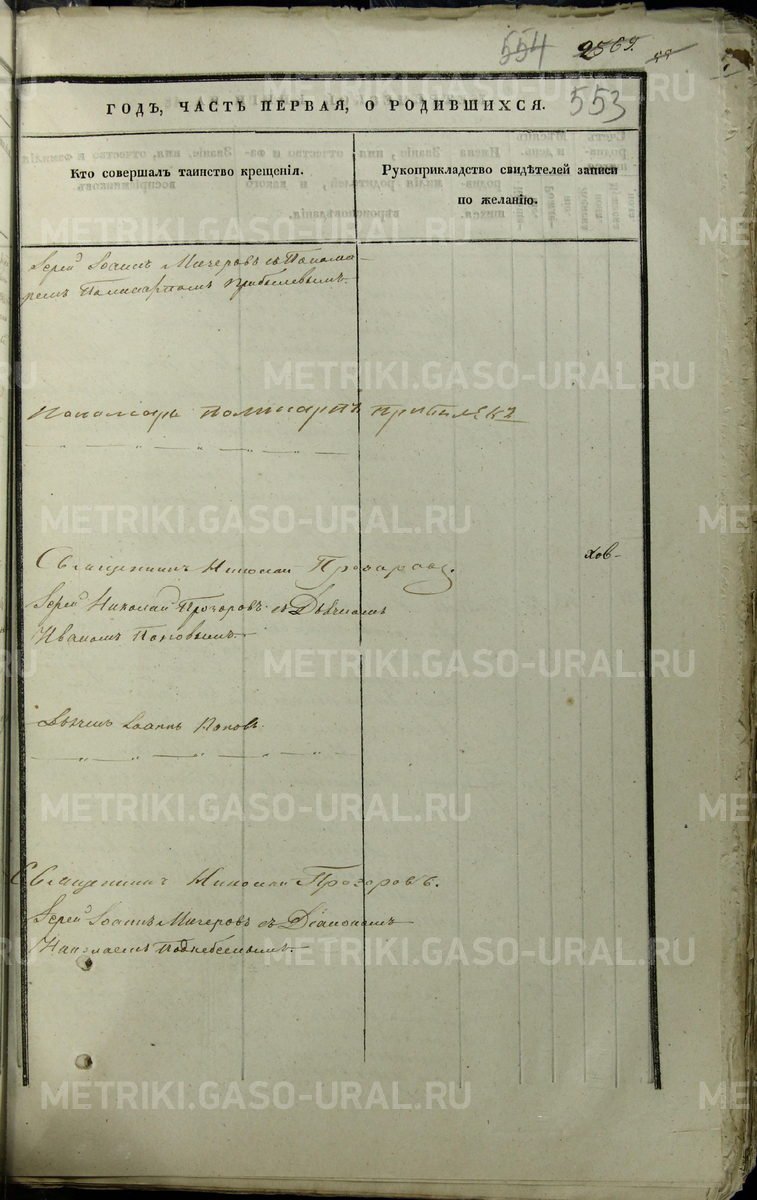 554 2569.
553
ГОДЪ, ЧАСТЬ ПЕРВАЯ, О РОДИВШИХСЯ.
Кто совершалъ таинство крещенія.
Рукоприкладство свидѣтелей записи
по желанію.
Іерей Іоаннъ Мичеровъ съ Понома-
ремъ Поликарпомъ Прибылевымъ.
Пономарь Поликарпъ Прибылевъ
хов-
Священникъ Николай Прозоровъ.
Іерей Николай Прозоровъ съ Дьячкомъ
Иваномъ Поповымъ.
Дьячекъ Іоаннъ Поповъ.
Священникъ Николай Прозоровъ.
Іерей Іоаннъ Мичеровъ съ Діакономъ
Николаемъ Поднебеснымъ.
METRIKI.GASO-URAL.RU